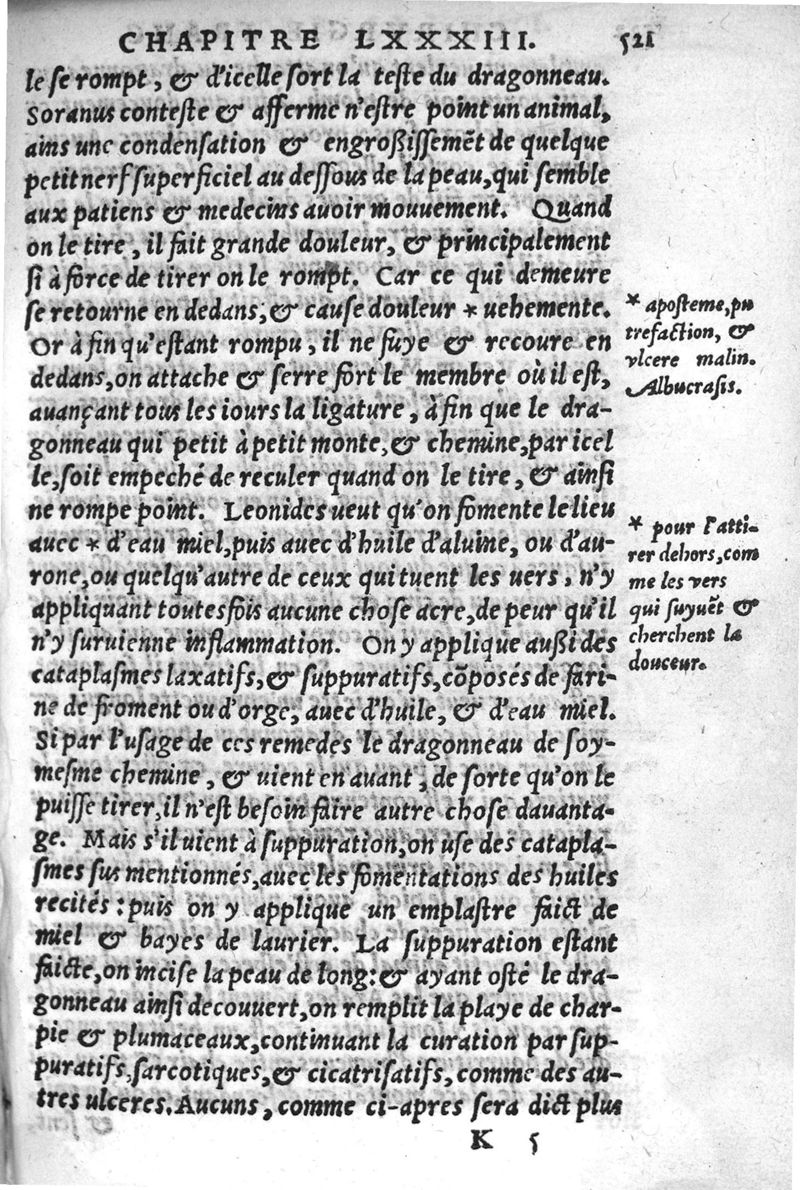 CHAPITRE LXXXIII. 521
le se rompt, & d'icelle sort la teste du dragonneau.
Soranus conteste & afferme n'estre point un animal,
ains une condensation & engroßissemẽt de quelque
petit nerf superficiel au dessous de la peau, qui semble
aux patiens & medecins auoir mouuement. Quand
on le tire, il fait grande douleur, & principalement
si à force de tirer on le rompt. Car ce qui demeure
se retourne en dedans, & cause douleur * uehemente.
Or à fin qu'estant rompu, il ne fuye & recoure en
dedans, on attache & serre fort le membre où il est,
auançant tous les iours la ligature, à fin que le dra-
gonneau qui petit à petit monte, & chemine, par icel
le, soit empeché de reculer quand on le tire, & ainsi
ne rompe point. Leonides ueut qu'on fomente le lieu
auec * d'eau miel, puis auec d'huile d'aluine, ou d'au-
rone, ou quelqu'autre de ceux qui tuent les uers, n'y
appliquant toutesfois aucune chose acre, de peur qu'il
n'y suruienne inflammation. On y applique außi des
cataplasmes laxatifs, & suppuratifs, cõposés de fari-
ne de froment ou d'orge, auec d'huile, & d'eau miel.
Si par l'usage de ces remedes le dragonneau de soy-
mesme chemine, & uient en auant, de sorte qu'on le
puisse tirer, il n'est besoin faire autre chose dauanta-
ge. Mais s'il uient à suppuration, on use des catapla-
smes sus mentionnés, auec les fomentations des huiles
recités: puis on y applique un emplastre faict de
miel & bayes de laurier. La suppuration estant
faicte, on incise la peau de long: & ayant osté le dra-
gonneau ainsi decouuert, on remplit la playe de char-
pie & plumaceaux, continuant la curation par sup-
puratifs, sarcotiques, & cicatrisatifs, comme des au-
tres ulceres. Aucuns, comme ci-apres sera dict plus
K 5
* aposteme, pu
trefaction, &
vlcere malin.
Albucrasis.
* pour l'atti-
rer dehors, com
me les vers
qui suyuẽt &
cherchent la
douceur.